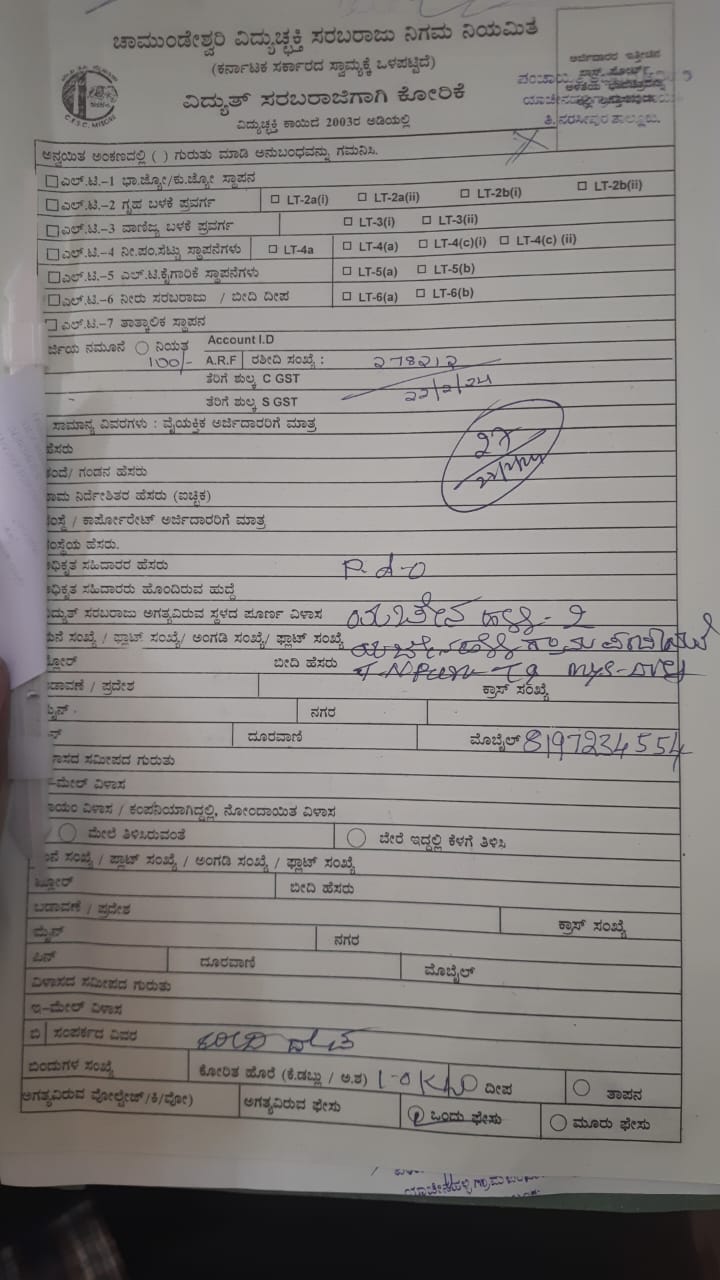 ಚಾಮುಂಡೇಶ್ವರಿ ವಿದ್ಯುಚ್ಛಕ್ತಿ ಸರಬರಾಜು ನಿಗಮ ನಿಯಮಿತ
(ಕರ್ನಾಟಕ ಸರ್ಕಾರದ ಸ್ವಾಮ್ಯಕ್ಕೆ ಒಳಪಟ್ಟಿದೆ)
ವಿದ್ಯುತ್ ಸರಬರಾಜಿಗಾಗಿ ಕೋರಿಕೆ
ವಿದ್ಯುಚ್ಛಕ್ತಿ ಕಾಯಿದೆ 2003ರ ಅಡಿಯಲ್ಲಿ
C.E.S.C. MYSORE
ಅರ್ಜಿದಾರರ ಇತ್ತೀಚಿನ
ತಿ. ನರಸೀಪುರ ತಾಲ್ಲೂಕು.
ಅನ್ವಯಿತ ಅಂಕಣದಲ್ಲಿ ( ) ಗುರುತು ಮಾಡಿ ಅನುಬಂಧವನ್ನು ಗಮನಿಸಿ.
ಎಲ್.ಟಿ.-1 ಭಾ.ಜ್ಯೋ/ಕು.ಜ್ಯೋ ಸ್ಥಾಪನ
ಎಲ್.ಟಿ.-2 ಗೃಹ ಬಳಕೆ ಪ್ರವರ್ಗ LT-2a(i) LT-2a(ii) LT-2b(i) LT-2b(ii)
ಎಲ್.ಟಿ.-3 ವಾಣಿಜ್ಯ ಬಳಕೆ ಪ್ರವರ್ಗ LT-3(i) LT-3(ii)
ಎಲ್.ಟಿ.-4 ನೀ.ಪಂ.ಸೆಟ್ಟು ಸ್ಥಾಪನೆಗಳು LT-4a LT-4(a) LT-4(c)(i) LT-4(c) (ii)
ಎಲ್.ಟಿ.-5 ಎಲ್.ಟಿ.ಕೈಗಾರಿಕೆ ಸ್ಥಾಪನೆಗಳು LT-5(a) LT-5(b)
ಎಲ್.ಟಿ.-6 ನೀರು ಸರಬರಾಜು / ಬೀದಿ ದೀಪ LT-6(a) LT-6(b)
ಎಲ್.ಟಿ.-7 ತಾತ್ಕಾಲಿಕ ಸ್ಥಾಪನ
ರ್ಜಿಯ ನಮೂನೆ ನಿಯತ Account I.D
100/- A.R.F ರಶೀದಿ ಸಂಖ್ಯೆ : 278212
ತೆರಿಗೆ ಶುಲ್ಕ C GST 22/2/24
ತೆರಿಗೆ ಶುಲ್ಕ S GST
ಸಾಮಾನ್ಯ ವಿವರಗಳು : ವೈಯಕ್ತಿಕ ಅರ್ಜಿದಾರರಿಗೆ ಮಾತ್ರ
ಹೆಸರು 27
ತಂದೆ/ ಗಂಡನ ಹೆಸರು
ನಾಮ ನಿರ್ದೇಶಿತರ ಹೆಸರು (ಐಚ್ಛಿಕ)
ಸಂಸ್ಥೆ / ಕಾರ್ಪೋರೇಟ್ ಅರ್ಜಿದಾರರಿಗೆ ಮಾತ್ರ
ಸಂಸ್ಥೆಯ ಹೆಸರು.
ಅಧಿಕೃತ ಸಹಿದಾರರ ಹೆಸರು P.d.O
ಅಧಿಕೃತ ಸಹಿದಾರರು ಹೊಂದಿರುವ ಹುದ್ದೆ
ವಿದ್ಯುತ್ ಸರಬರಾಜು ಅಗತ್ಯವಿರುವ ಸ್ಥಳದ ಪೂರ್ಣ ವಿಳಾಸ
ಮನೆ ಸಂಖ್ಯೆ / ಪ್ಲಾಟ್ ಸಂಖ್ಯೆ/ ಅಂಗಡಿ ಸಂಖ್ಯೆ/ ಫ್ಲಾಟ್ ಸಂಖ್ಯೆ
ಫ್ಲೋರ್ ಬೀದಿ ಹೆಸರು
ಬಡಾವಣೆ / ಪ್ರದೇಶ ಕ್ರಾಸ್ ಸಂಖ್ಯೆ
ಮೈನ್ ನಗರ
ಪಿನ್ ದೂರವಾಣಿ ಮೊಬೈಲ್ 8197234554
ವಿಳಾಸದ ಸಮೀಪದ ಗುರುತು
ಇ-ಮೇಲ್ ವಿಳಾಸ
ಖಾಯಂ ವಿಳಾಸ / ಕಂಪನಿಯಾಗಿದ್ದಲ್ಲಿ, ನೋಂದಾಯಿತ ವಿಳಾಸ
ಮೇಲೆ ತಿಳಿಸಿರುವಂತೆ ಬೇರೆ ಇದ್ದಲ್ಲಿ ಕೆಳಗೆ ತಿಳಿಸಿ
ಮನೆ ಸಂಖ್ಯೆ / ಪ್ಲಾಟ್ ಸಂಖ್ಯೆ / ಅಂಗಡಿ ಸಂಖ್ಯೆ / ಫ್ಲಾಟ್ ಸಂಖ್ಯೆ
ಫ್ಲೋರ್ ಬೀದಿ ಹೆಸರು
ಬಡಾವಣೆ / ಪ್ರದೇಶ ಕ್ರಾಸ್ ಸಂಖ್ಯೆ
ಮೈನ್ ನಗರ
ಪಿನ್ ದೂರವಾಣಿ ಮೊಬೈಲ್
ವಿಳಾಸದ ಸಮೀಪದ ಗುರುತು
ಇ-ಮೇಲ್ ವಿಳಾಸ
ಬಿ ಸಂಪರ್ಕದ ವಿವರ
ಬಿಂದುಗಳ ಸಂಖ್ಯೆ ಕೋರಿತ ಹೊರೆ (ಕೆ.ಡಬ್ಲು / ಅ.ಶ) 1-0KW ದೀಪ ತಾಪನ
ಅಗತ್ಯವಿರುವ ವೋಲ್ಟೇಜ್/ಕಿ/ವೋ) ಅಗತ್ಯವಿರುವ ಫೇಸು ಒಂದು ಫೇಸು ಮೂರು ಫೇಸು